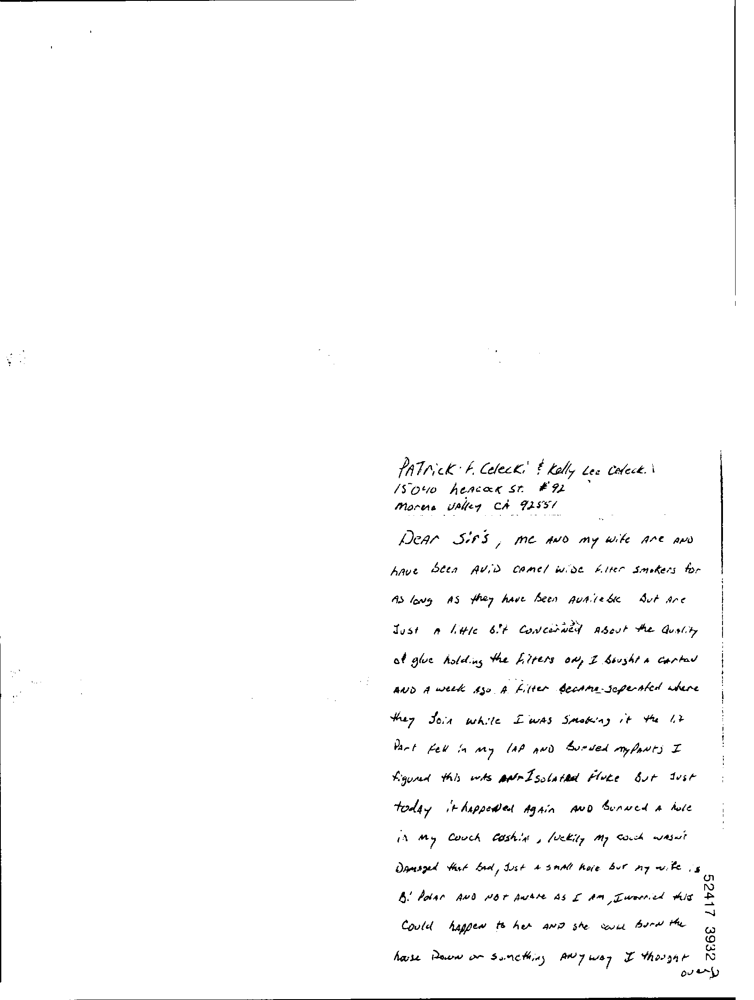 PATrick F. Celecki & Kelly Lee Celecki
15040 heacock ST. #92
Moreno Valley CA 92551
Dear Sir's, me AND my wife Are AND
have been AviD camel wide Filter smokers for
As long As they have been Availeble But Are
Just A little bit Concerned About the Quality
of glue holding the Filters on, I bought a carton
AND A week Ago A Filter became seperated where
they Join while I was Smoking it the lit
Part Fell in my LAP AND Burned my PANTS I
figured this was an Isolated Fluke But Just
today it happened Again AND Burned A hole
in my Couch Cushin, luckily my couch wasn't
Damaged that bad, Just a small hole but my wife is
Bi Polar AND NOT Aware As I Am, I worried this
Could happen to her AND she could burn the
house Down or something Any way I thought
over
52417 3932